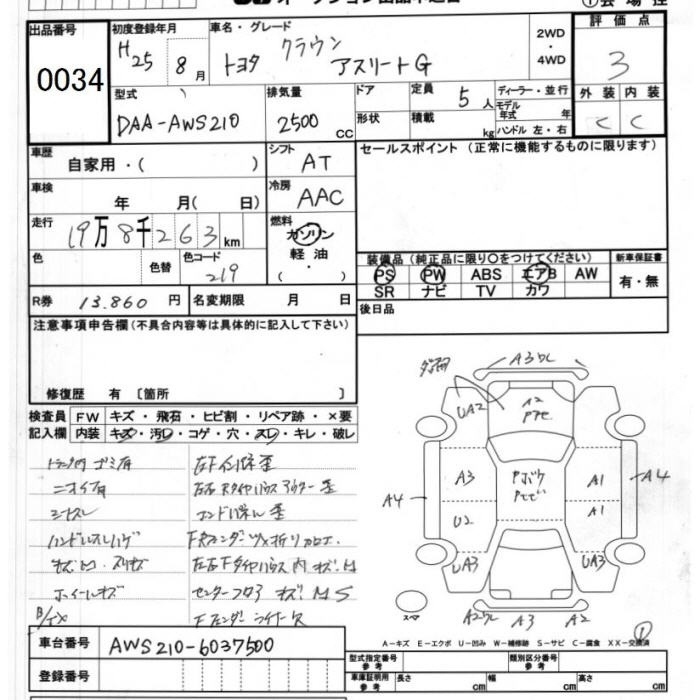 出品番号
0034
初度登録年月
H25 8月
車名・グレード
トヨタ クラウン アスリートG
2WD
・
4WD
評価点
3
外装 内装
C C
型式
DAA-AWS210
排気量
2500 CC
ドア
形状
定員 5人
積載 kg
ディーラー・並行
モデル年式 年
ハンドル 左・右
車歴 自家用・( )
シフト AT
セールスポイント (正常に機能するものに限ります)
車検 年 月( 日)
冷房 AAC
走行 19万8千263km
燃料 ガソリン
軽油
・( )
色 色替 色コード 219
装備品 (純正品に限り○をつけてください)
新車保証書
PS PW ABS エアB AW
SR ナビ TV カワ
有・無
R券 13.860 円 名変期限 月 日
後日品
注意事項申告欄(不具合内容等は具体的に記入して下さい)
修復歴 有 〔箇所 〕
検査員記入欄
FW キズ・飛石・ヒビ割・リペア跡・×要
内装 キズ・汚レ・コゲ・穴・スレ・キレ・破レ
トランク内ゴミ有
ニオイ有
シートスレ
ハンドルスレハゲ
ホイールキズ
左右Rタイヤハウスアウター歪
エンドパネル歪
左右Fタイヤハウス内キズM
センターフロアキズMS
Fフェンダーライナー欠
A3ワレ
UA2
A2
A3
Pボウ
A1
A4
A4
U2
A1
UA3
UA3
スペア
A2ワレ A3 A2
①
A-キズ E-エクボ U-凹み W-補修跡 S-サビ C-腐食 XX-交換済
車台番号 AWS210-6037500
登録番号
型式指定番号 参考
類別区分番号 参考
車庫証明用 参考
長さ cm 幅 cm 高さ cm